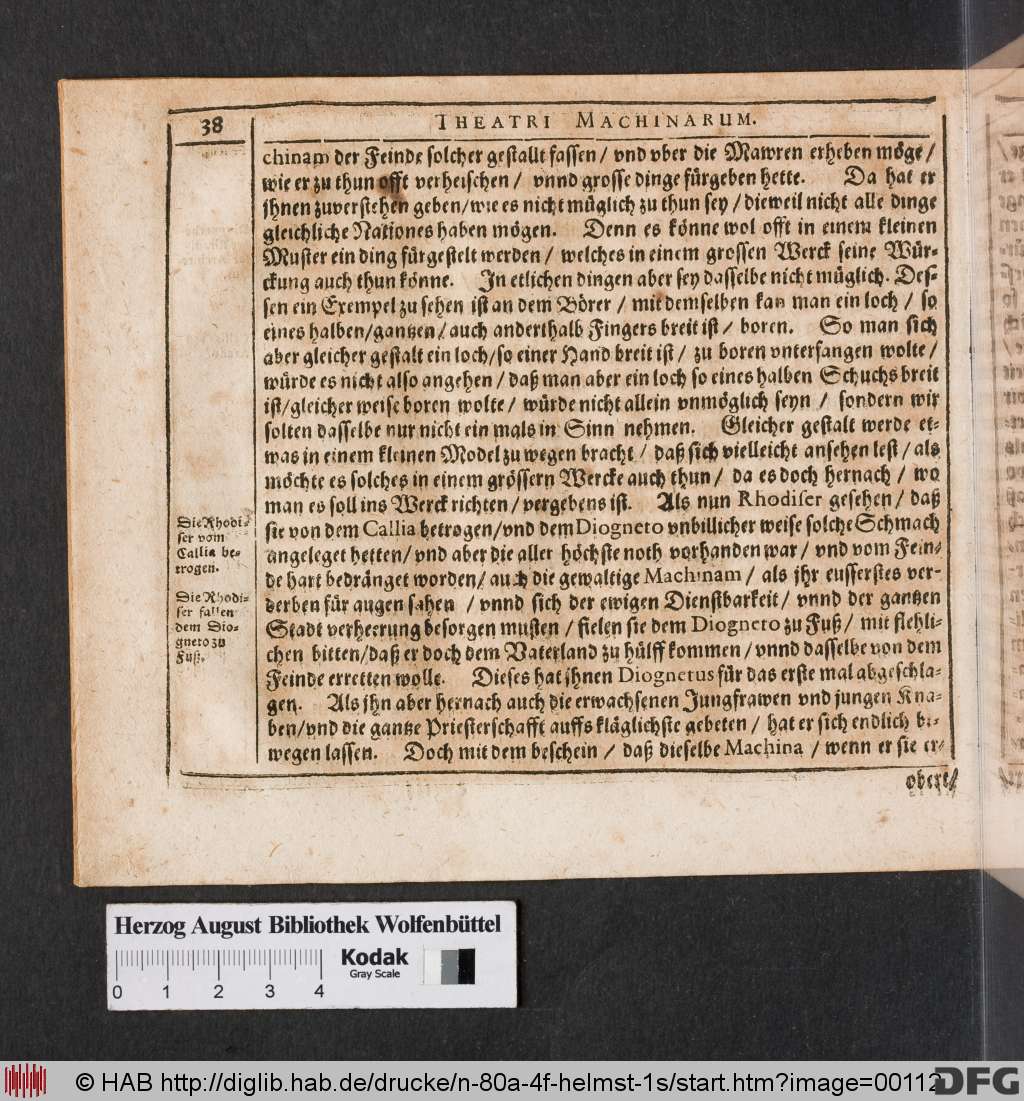 38
THEATRI MACHINARUM.
chinam der Feinde solcher gestallt fassen / vnd vber die Mawren erheben möge /
wie er zu thun offt verheischen / vnnd grosse dinge fürgeben hette. Da hat er
jhnen zuverstehen geben/wie es nicht müglich zu thun sey / dieweil nicht alle dinge
gleichliche Nationes haben mögen. Denn es könne wol offt in einem kleinen
Muster ein ding fürgestelt werden / welches in einem grossen Werck seine Wür-
ckung auch thun könne. In etlichen dingen aber sey dasselbe nicht müglich. Des-
sen ein Exempel zu sehen ist an dem Börer / mit demselben kan man ein loch / so
eines halben/gantzen / auch anderthalb Fingers breit ist / boren. So man sich
aber gleicher gestalt ein loch/so einer Hand breit ist / zu boren vnterfangen wolte /
würde es nicht also angehen / daß man aber ein loch so eines halben Schuchs breit
ist/gleicher weise boren wolte / würde nicht allein vnmöglich seyn / sondern wir
solten dasselbe nur nicht ein mals in Sinn nehmen. Gleicher gestalt werde et-
was in einem kleinen Model zu wegen bracht / daß sich vielleicht ansehen lest / als
möchte es solches in einem grössern Wercke auch thun / da es doch hernach / wo
man es soll ins Werck richten / vergebens ist. Als nun Rhodiser gesehen / daß
sie von dem Callia betrogen/vnd dem Diogneto vnbillicher weise solche Schmach
angeleget hetten / vnd aber die aller höchste noth vorhanden war / vnd vom Fein-
de hart bedränget worden/ auch die gewaltige Machinam / als jhr eusserstes ver-
derben für augen sahen / vnnd sich der ewigen Dienstbarkeit / vnnd der gantzen
Stadt verheerung besorgen musten / fielen sie dem Diogneto zu Fuß / mit flehli-
chen bitten/daß er doch dem Vaterland zu hülff kommen / vnnd dasselbe von dem
Feinde erretten wolle. Dieses hat ihnen Diognetus für das erste mal abgeschla-
gen. Als jhn aber hernach auch die erwachsenen Jungfrawen vnd jungen Kna-
ben/vnd die gantze Priesterschafft auffs kläglichste gebeten / hat er sich endlich be-
wegen lassen. Doch mit dem beschein / daß dieselbe Machina / wenn er sie er-
obert/
Die Rhodi-
ser vom
Callia be-
trogen.
Die Rhodi-
ser fallen
dem Dio-
gneto zu
Fuß.
Herzog August Bibliothek Wolfenbüttel
Kodak
Gray Scale
0 1 2 3 4
© HAB http://diglib.hab.de/drucke/n-80a-4f-helmst-1s/start.htm?image=00112
DFG